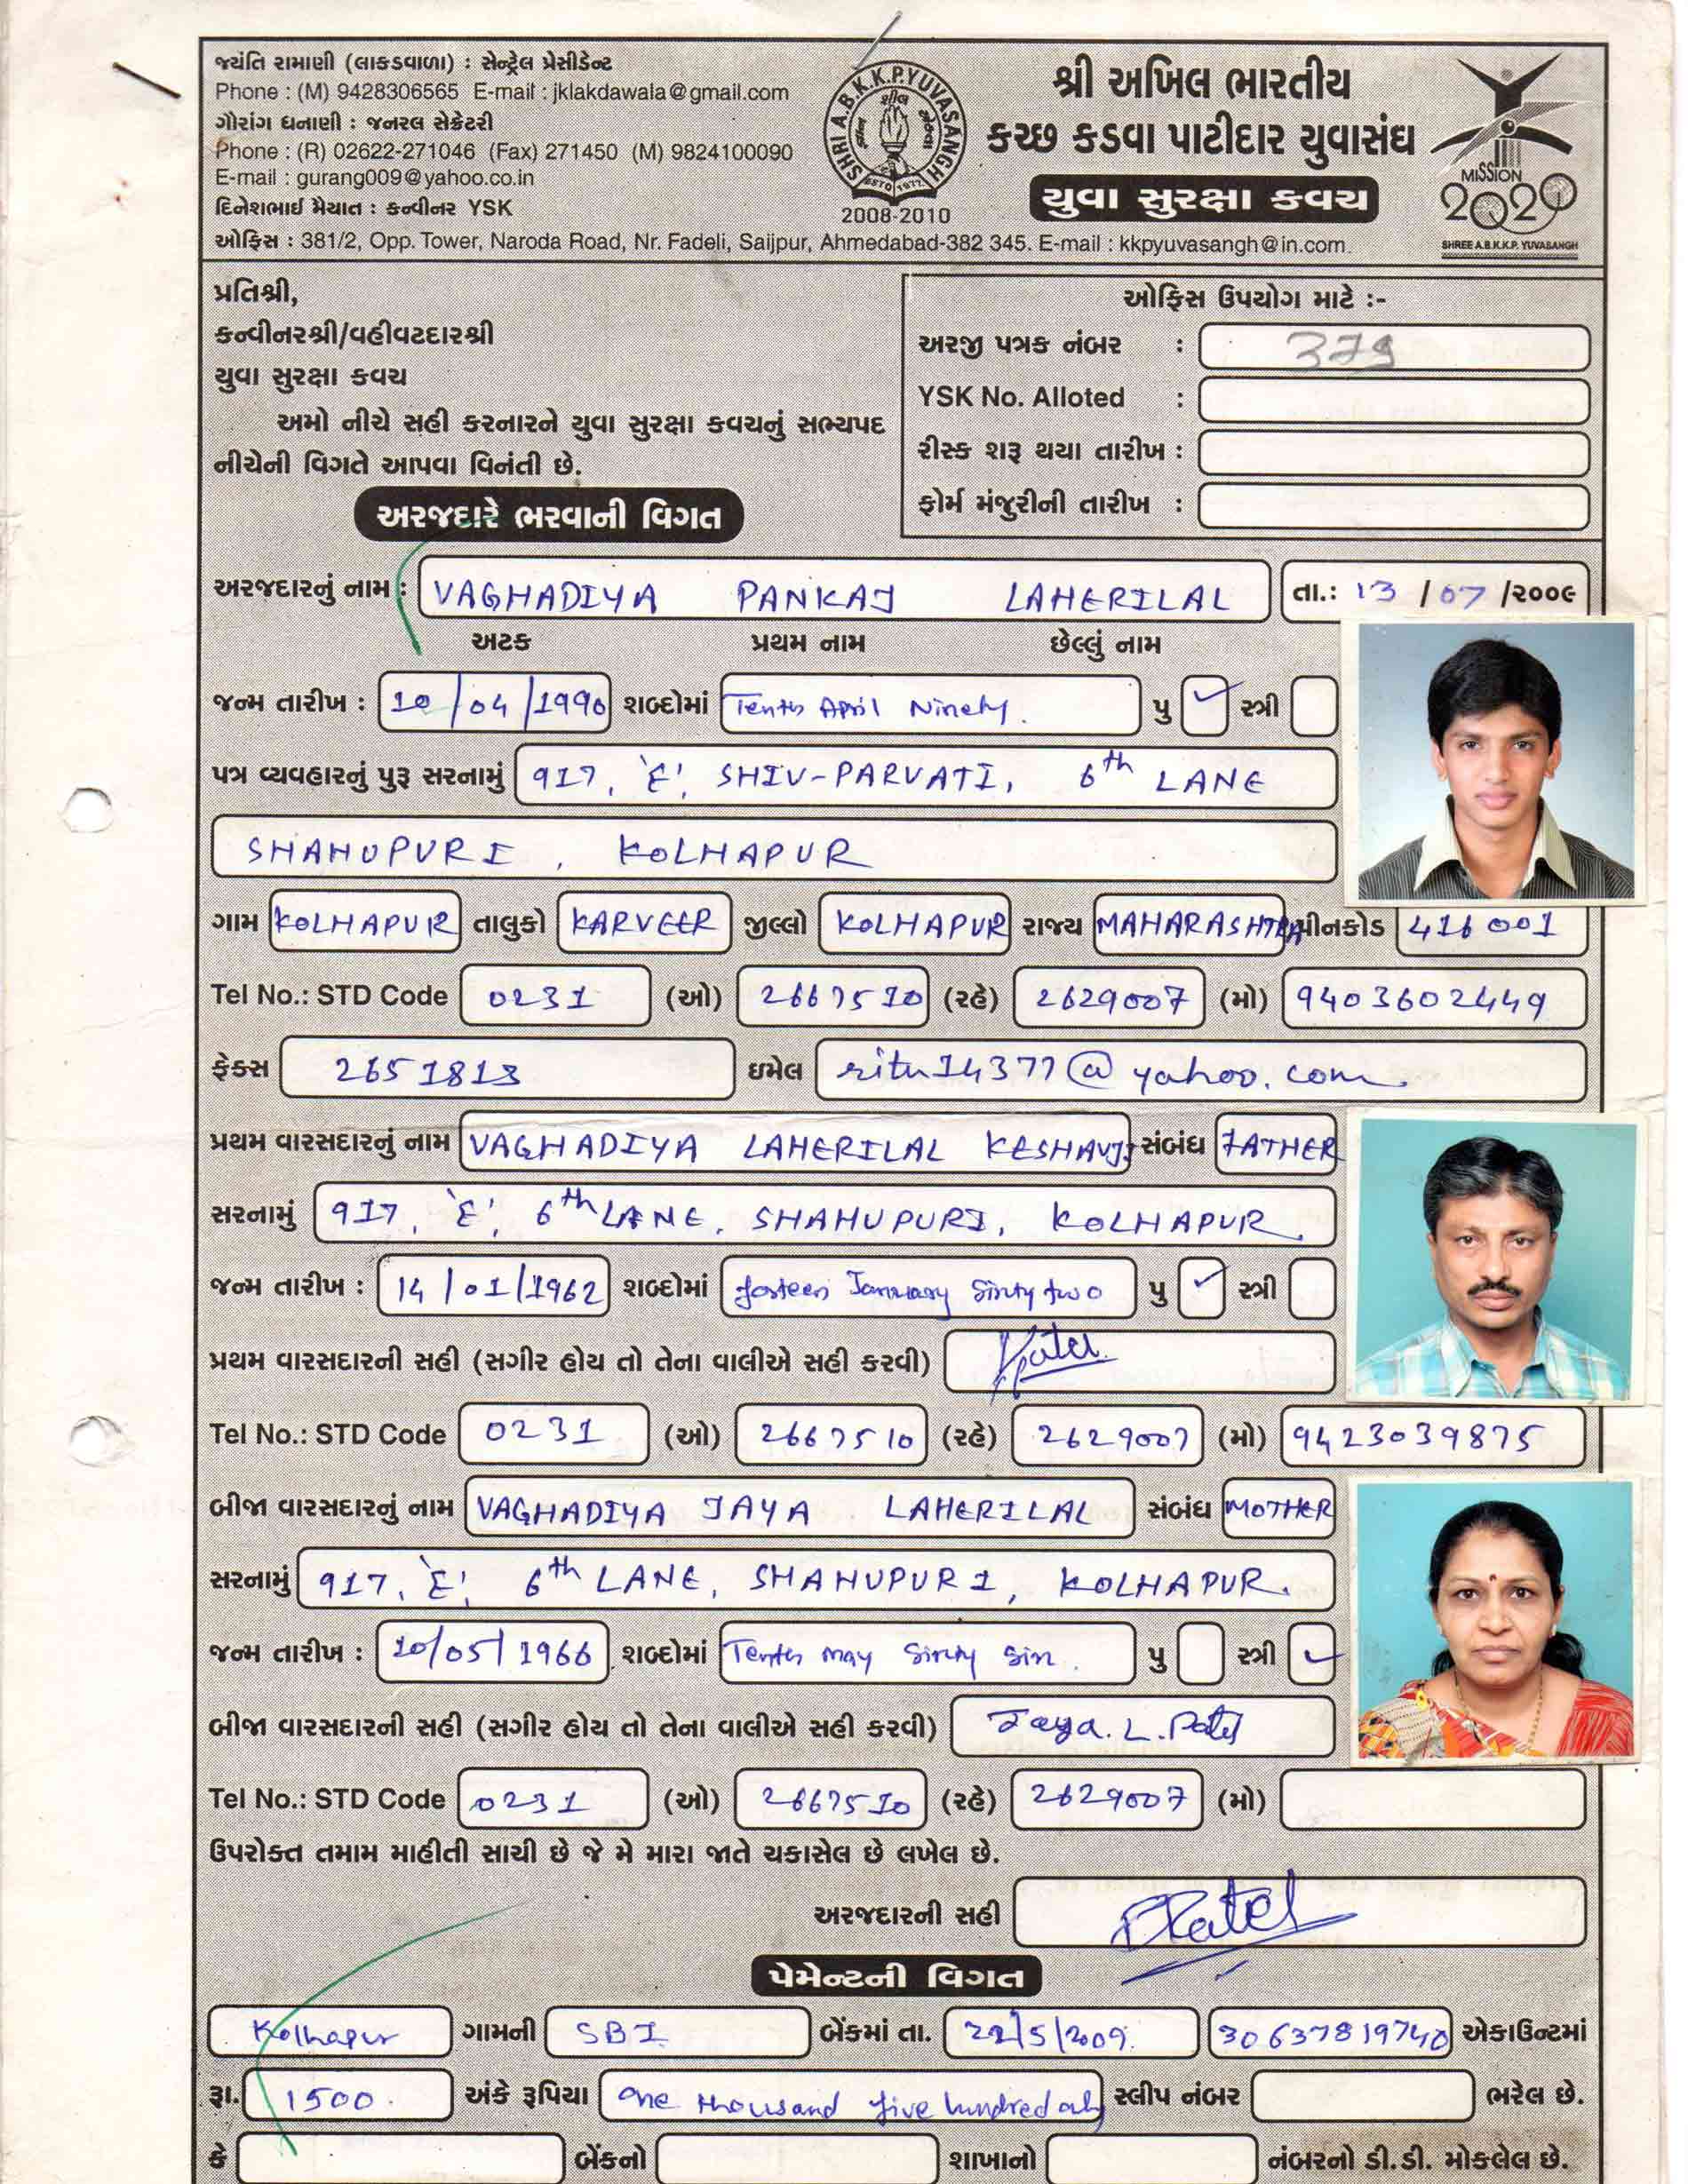 જ્યંતિ રામાણી (લાકડાવાળા) : સેન્ટ્રેલ પ્રેસીડેન્ટ
Phone : (M) 9428306565 E-mail : jklakdawala@gmail.com
ગૌરાંગ ધનાણી : જનરલ સેક્રેટરી
Phone : (R) 02622-271046 (Fax) 271450 (M) 9824100090
E-mail : gurang009@yahoo.co.in
દિનેશભાઈ મૈયાત : કન્વીનર YSK
SHRI A.B.K.K.P. YUVASANGH
ESTD 1977
2008-2010
શ્રી અખિલ ભારતીય
કચ્છ કડવા પાટીદાર યુવાસંઘ
યુવા સુરક્ષા કવચ
MISSION
2020
SHREE A.B.K.K.P. YUVASANGH
ઓફિસ : 381/2, Opp. Tower, Naroda Road, Nr. Fadeli, Saijpur, Ahmedabad-382 345. E-mail : kkpyuvasangh@in.com.
પ્રતિશ્રી,
કન્વીનરશ્રી/વહીવટદારશ્રી
યુવા સુરક્ષા કવચ
અમો નીચે સહી કરનારને યુવા સુરક્ષા કવચનું સભ્યપદ
નીચેની વિગતે આપવા વિનંતી છે.
ઓફિસ ઉપયોગ માટે :-
અરજી પત્રક નંબર : 379
YSK No. Alloted :
રીસ્ક શરૂ થયા તારીખ :
ફોર્મ મંજુરીની તારીખ :
અરજદારે ભરવાની વિગત
અરજદારનું નામ : VAGHADIYA PANKAJ LAHERILAL તા.: 13 / 07 /૨૦૦૯
અટક પ્રથમ નામ છેલ્લું નામ
જન્મ તારીખ : 10/04/1990 શબ્દોમાં Tenth April Ninety. પુ ✓ સ્ત્રી
પત્ર વ્યવહારનું પુરૂ સરનામું 917, 'E', SHIV-PARVATI, 6th LANE
SHAHUPURI, KOLHAPUR
ગામ KOLHAPUR તાલુકો KARVEER જીલ્લો KOLHAPUR રાજ્ય MAHARASHTRA પીનકોડ 416 001
Tel No.: STD Code 0231 (ઓ) 2667510 (રહે) 2629007 (મો) 9403602449
ફેક્સ 2651813 ઇમેલ ritu14377@yahoo.com
પ્રથમ વારસદારનું નામ VAGHADIYA LAHERILAL KESHAVJI સંબંધ FATHER
સરનામું 917, 'E', 6th LANE, SHAHUPURI, KOLHAPUR.
જન્મ તારીખ : 14/01/1962 શબ્દોમાં forteen January Sixty two પુ ✓ સ્ત્રી
પ્રથમ વારસદારની સહી (સગીર હોય તો તેના વાલીએ સહી કરવી)
Tel No.: STD Code 0231 (ઓ) 2667510 (રહે) 2629007 (મો) 9423039875
બીજા વારસદારનું નામ VAGHADIYA JAYA LAHERILAL સંબંધ MOTHER
સરનામું 917, 'E', 6th LANE, SHAHUPURI, KOLHAPUR.
જન્મ તારીખ : 10/05/1966 શબ્દોમાં Tenth may Sixty Six. પુ સ્ત્રી ✓
બીજા વારસદારની સહી (સગીર હોય તો તેના વાલીએ સહી કરવી) Jaya. L. Patel
Tel No.: STD Code 0231 (ઓ) 2667510 (રહે) 2629007 (મો)
ઉપરોક્ત તમામ માહીતી સાચી છે જે મે મારા જાતે ચકાસેલ છે લખેલ છે.
અરજદારની સહી PPatel
પેમેન્ટની વિગત
Kolhapur ગામની SBI બેંકમાં તા. 22/5/2009. 30637819740 એકાઉન્ટમાં
રૂા. 1500. અંકે રૂપિયા One thousand five hundred only સ્લીપ નંબર ભરેલ છે.
કે બેંકનો શાખાનો નંબરનો ડી.ડી. મોકલેલ છે.